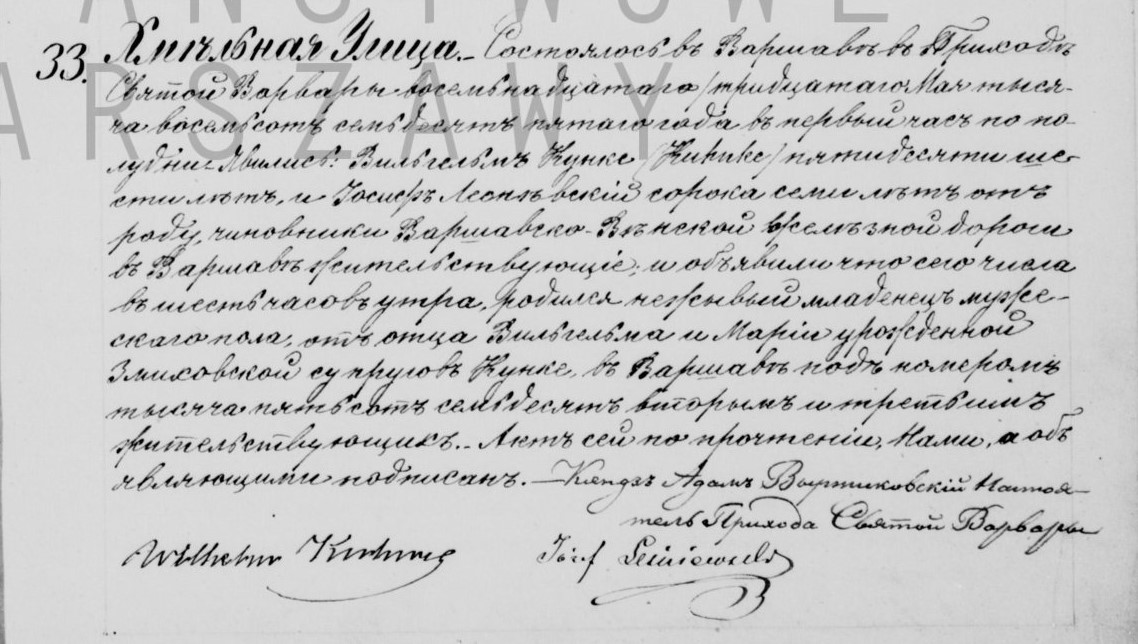 ANSTWOWE
ARSZAWY
33. Хмѣльная Улица. – Состоялось въ Варшавѣ въ Приходѣ
Святой Варвары восемьнадцатаго /тридцатаго Мая тыся-
ча восемьсотъ семьдесятъ пятаго года въ первый часъ по по-
лудни – Явились: Вильгельмъ Кунке /Kuhnke/ пятидесяти ше-
сти лѣтъ, и Іосифъ Леснѣвскій сорока семи лѣтъ отъ
роду, чиновники Варшавско-Вѣнской желѣзной дороги
въ Варшавѣ жительствующіе; и объявили что сего числа
въ шесть часовъ утра, родился неживый младенецъ муже-
скаго пола, отъ отца Вильгельма и Маріи урожденной
Змиховской супруговъ Кунке, въ Варшавѣ подъ номеромъ
тысяча пятьсотъ семьдесятъ вторымъ и третьимъ
жительствующихъ. – Актъ сей по прочтеніи, Нами, а объ
являющими подписанъ. – Ксендзъ Адамъ Настоя-
тель Прихода Святой Варвары
Wilhelm Kuhnke Józef